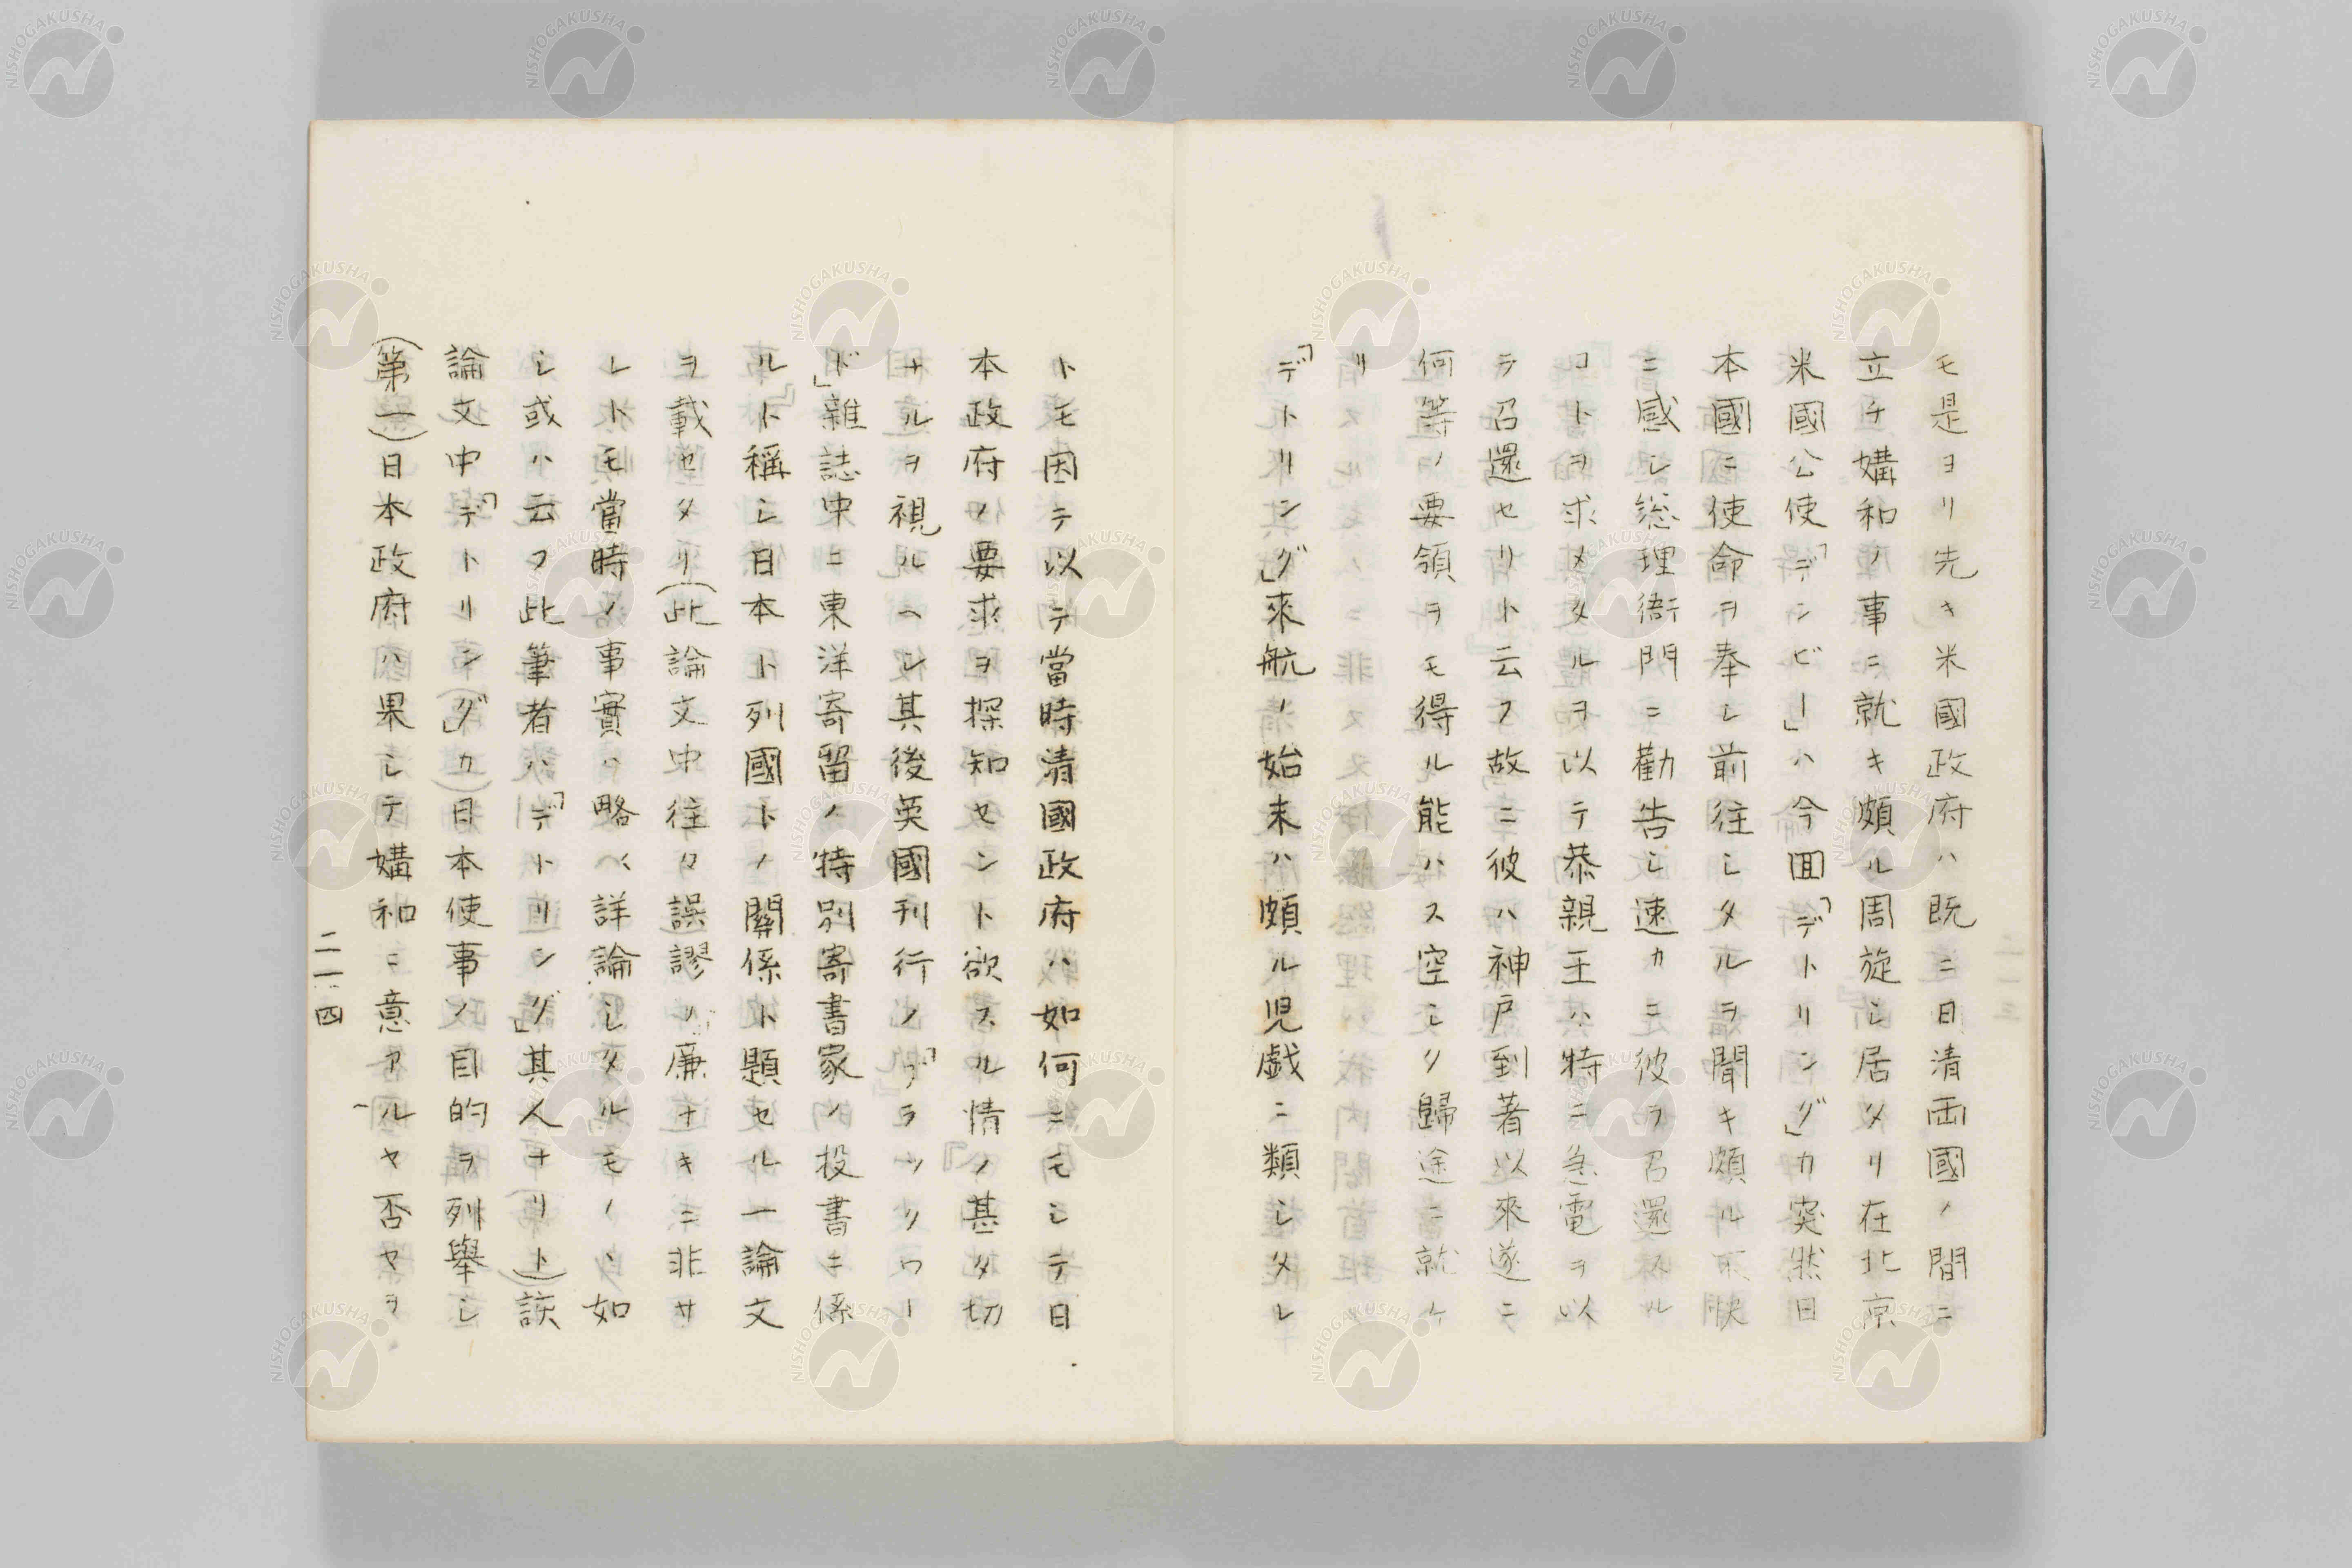 モ是ヨリ先キ米國政府ハ既ニ日清両國ノ間ニ
立チ媾和ノ事ニ就キ頗ル周旋シ居タリ在北京
米國公使「デンビー」ハ今囬「デトリング」カ突然日
本國ニ使命ヲ奉シ前往シタルヲ聞キ頗ル不快
ニ感シ総理衙門ニ勸告シ速カニ彼ヲ召還スル
コトヲ求メタルヲ以テ恭親王ハ特ニ急電ヲ以
テ召還セリト云フ故ニ彼ハ神戸到著以來遂ニ
何等ノ要領ヲモ得ル能ハス空シク歸途ニ就ケ
リ
「デトリング」來航ノ始末ハ頗ル児戯ニ類シタレ
トモ因テ以テ當時清國政府ハ如何ニモシテ日
本政府ノ要求ヲ探知セント欲スル情ノ甚タ切
ナルヲ視ルヘシ其後英國刊行ノ「ブラックウー
ド」雜誌中ニ東洋寄留ノ特別寄書家ノ投書ニ係
ルト稱シ日本ト列國トノ關係ト題セル一論文
ヲ載セタリ(此論文中往々誤謬ノ廉ナキニ非サ
レトモ當時ノ事實ハ略ヘ詳論シタルモノヽ如
シ或ハ云フ此筆者ハ「デトリング」其人ナリト)該
論文中「デトリング」カ日本使事ノ目的ヲ列舉シ
(第一)日本政府ハ果シテ媾和ニ意アルヤ否ヤヲ
二一四
NISHOGAKUSHA